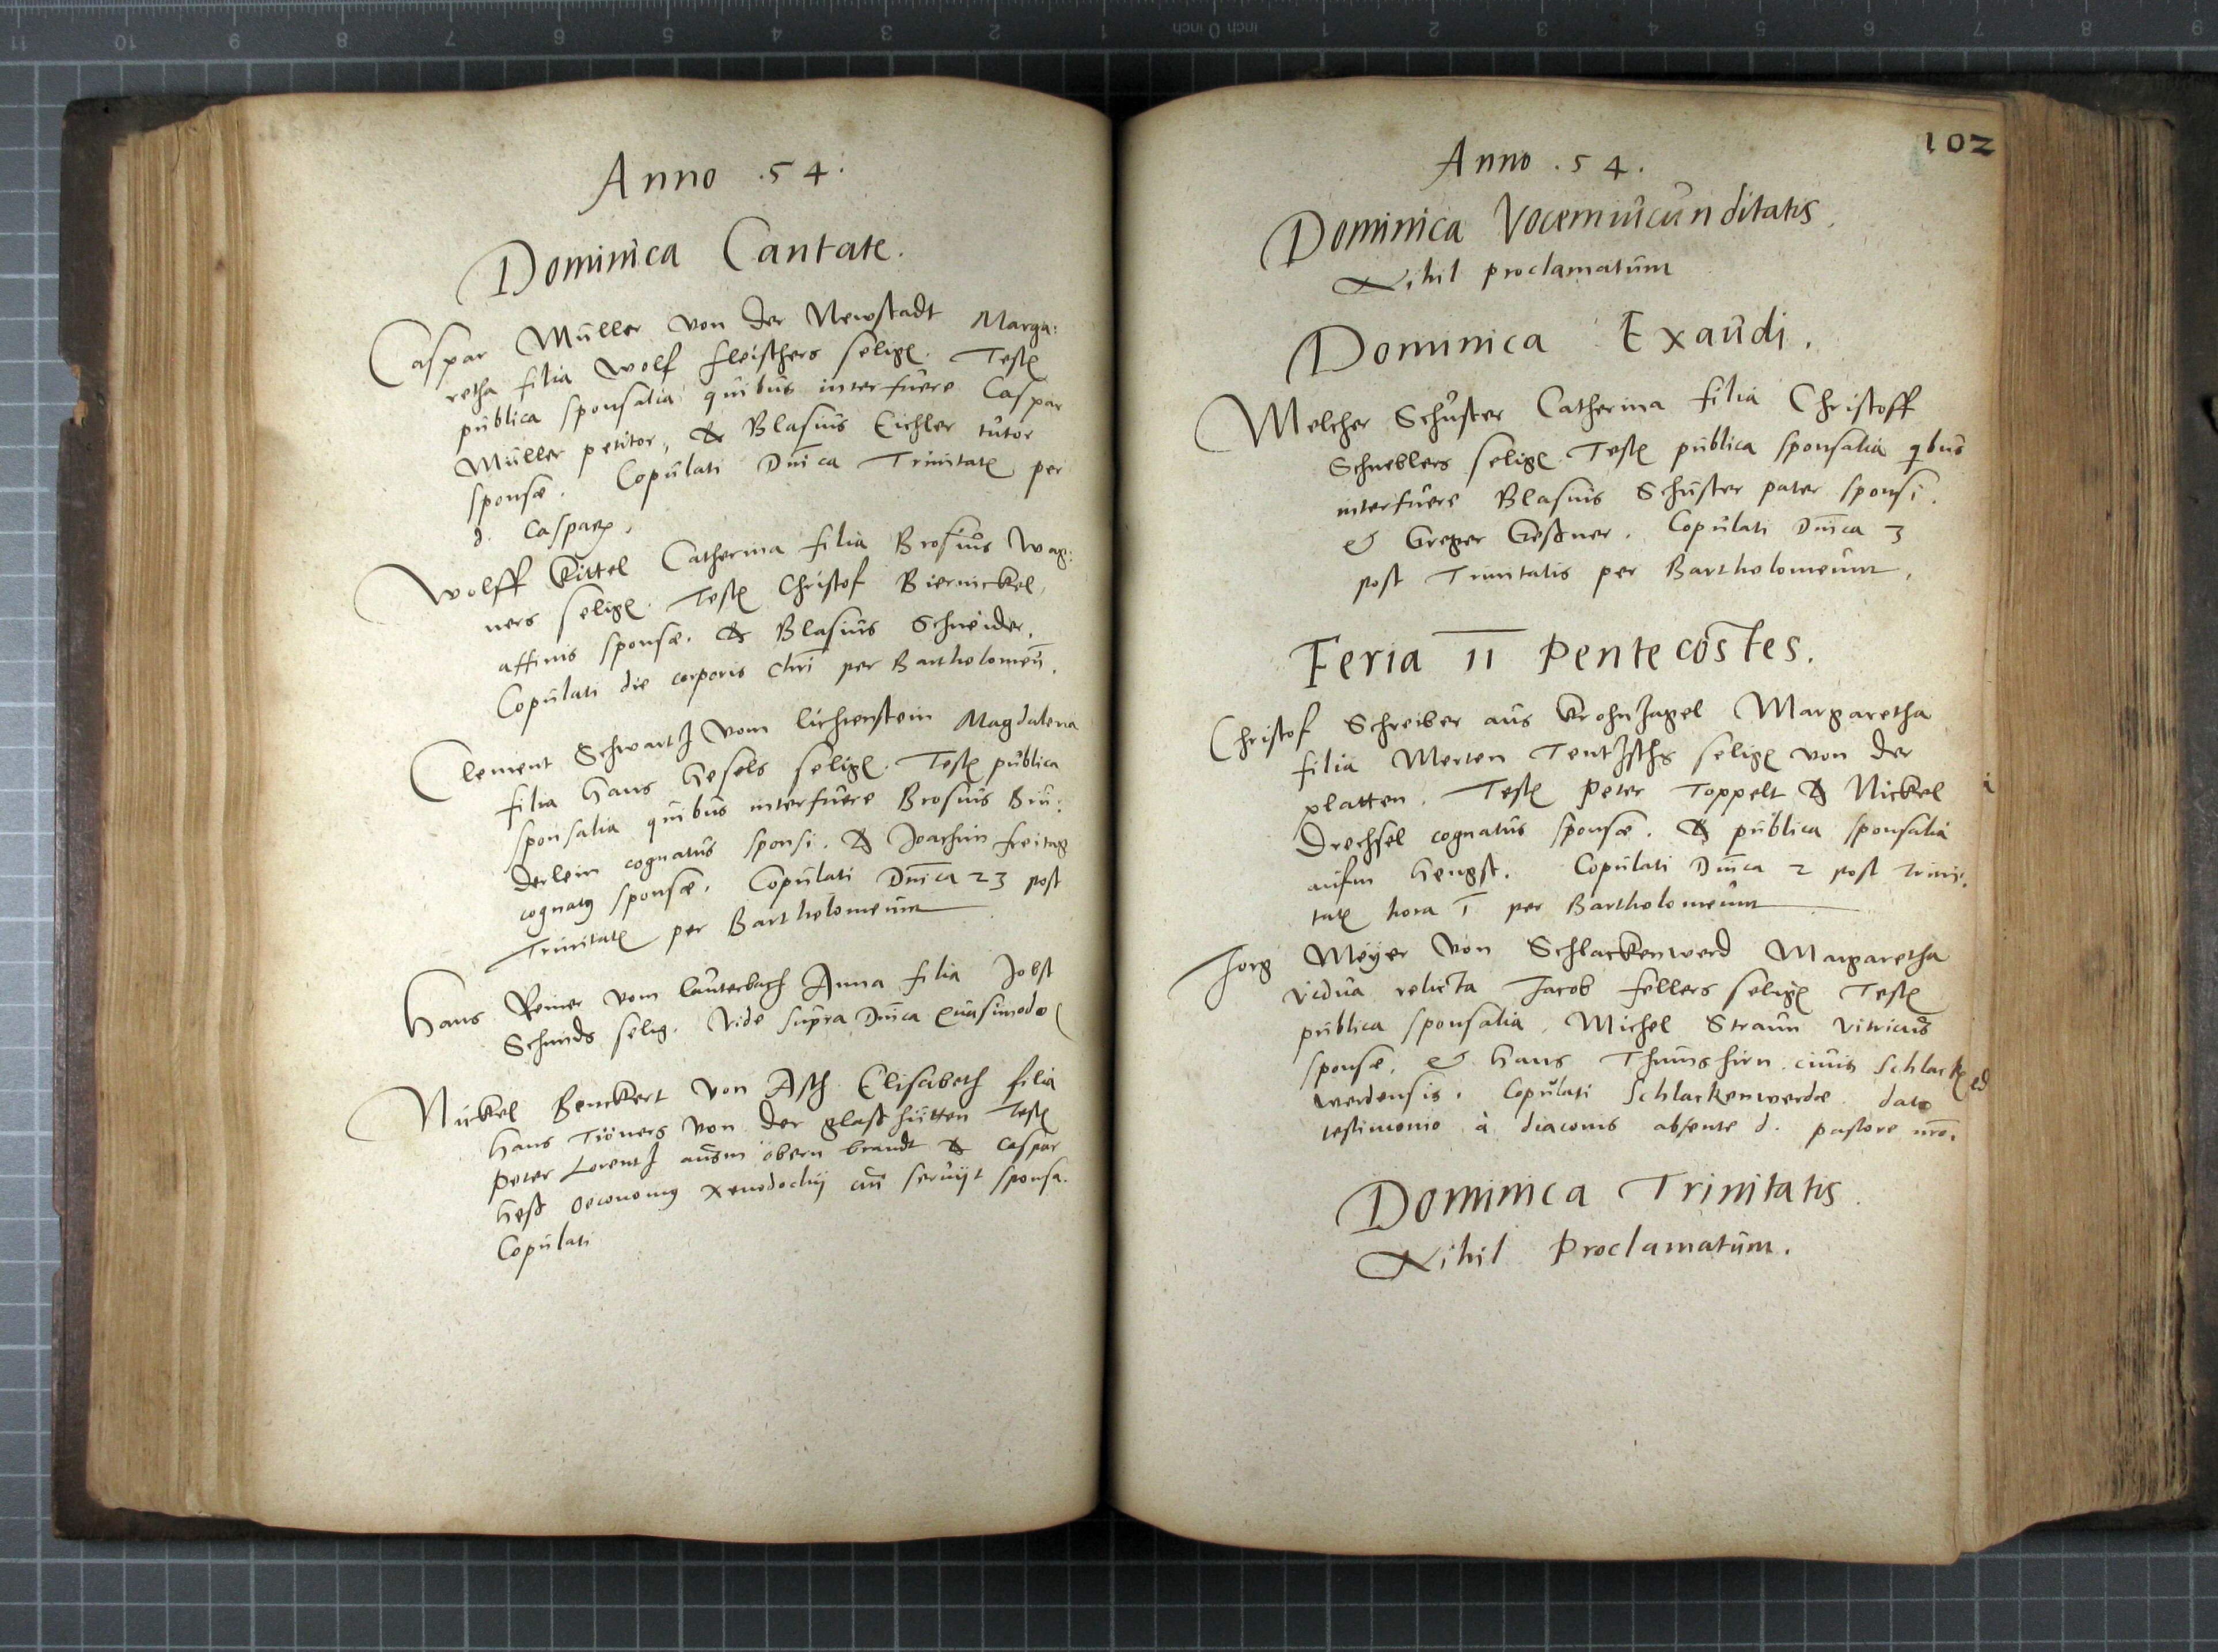 Anno .54.
Dominica Cantate.
Caspar Müller von der Newstadt Marga:
retha filia Wolf fleischers selig. Test
publica sponsalia quibus interfuere Caspar
Müller petitor, & Blasius Eichler tutor
sponsæ. Copulati Dnica Trinitat per
d. Caspar.
Wolff Kittel Catherina filia Brosius Wag:
ners selig. Test Christof Biernickel,
affinis sponsæ. & Blasius Schneider.
Copulati die corporis Chri per Bartholomeu.
Clement Schwartz vom lichtenstein Magdalena
filia Hans Hesels selig. Test publica
sponsalia quibus interfuere Brosius Bin:
derlein cognatus sponsi. & Joachim freitag
cognat9 sponsæ. Copulati Dnica 23 post
Trinitat per Bartholomeum
Hans Reiner vom lauterbach Anna filia Jobst
Schmids selig. Vide supra Dnica Quasimodo
Nickel Benckert von Asch Elisabeth filia
Hans von der glashütten Test
Peter Lorentz ausm obern brandt & Caspar
Heß oeconom9 xenodochij cui seruijt sponsa.
Copulati
102
Anno .54.
Dominica Vocemiucunditatis.
Nihil proclamatum
Dominica Exaudi.
Melcher Schuster Catherina filia Christoff
Schneblers selig. Test publica sponsalia qbus
interfuere Blasius Schuster pater sponsi.
& Greger Gestner. Copulati Dnica 3
post Trinitatis per Bartholomeum.
Feria II Pentecostes.
Christof Schreiber aus Krohnzagel Margaretha
filia Merten selig von der
platten. Test Peter Toppelt & Nickel
Drechsel cognatus sponsæ. & publica sponsalia
aufm Hengst. Copulati Dnica 2 post trini:
tat hora 1 per Bartholomeum
Jorg Meyer von Schlackenwerd Margaretha
vidua relicta Jacob fellers selig Test
publica sponsalia. Michel Straun vitricus
sponsæ, & Hans Thumshirn ciuis Schlacken
werdensis. Copulati Schlackenwerdæ dato
testimonio à diaconis absente d. pastore nro.
Dominica Trinitatis.
Nihil Proclamatum.